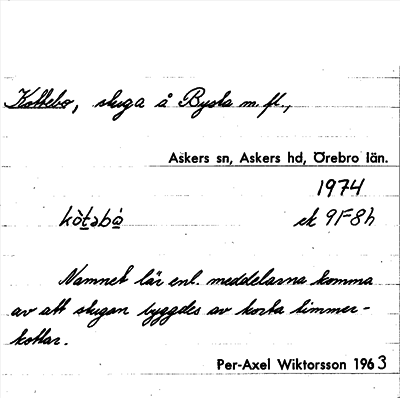 Kottebo, stuga å Bysta m.fl.,
Askers sn, Askers hd, Örebro län.
1974
kòṯəbò̱ ek 9F8h
Namnet lär enl. meddelarna komma
av att stugan byggdes av korta timmer-
kottar.
Per-Axel Wiktorsson 1963